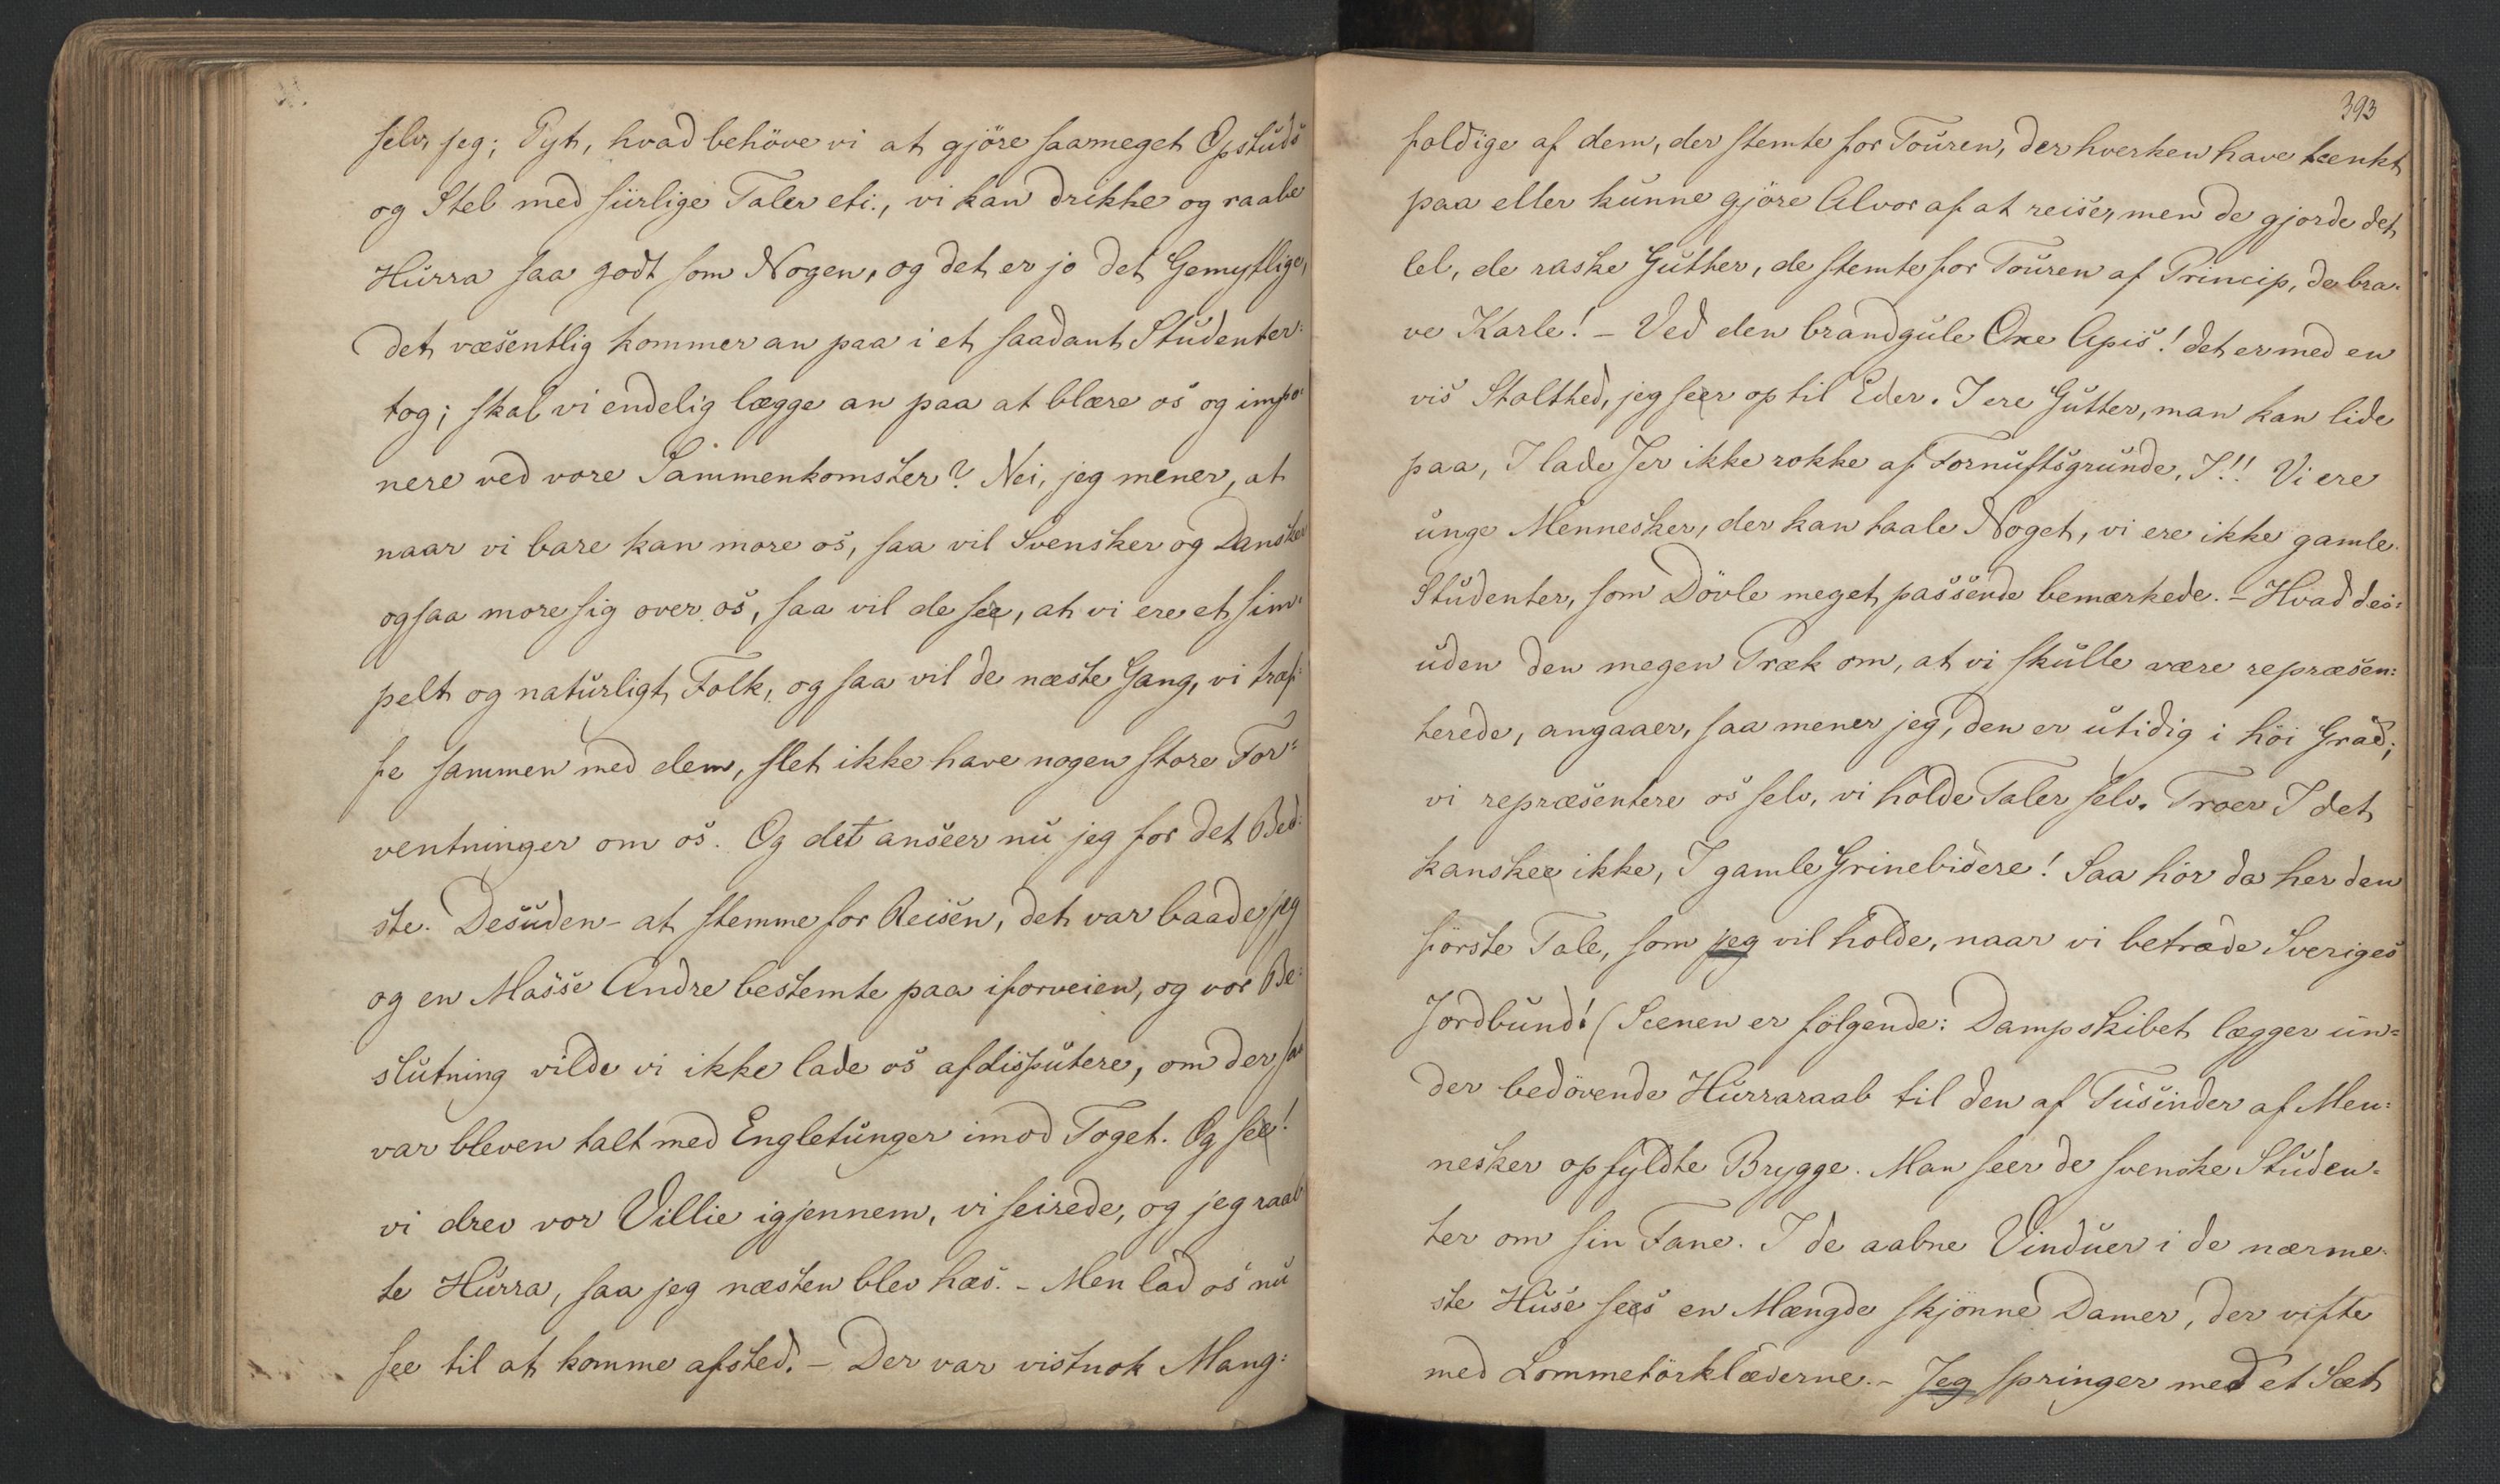 selv, jeg; Pyt, hvad behöve vi at gjöre saameget Opstuds
og Stel med siirlige Taler etc., vi kan drikke og raabe
Hurra saa godt som Nogen, og det er jo det Gemytlige,
det væsentlig kommer an paa i et saadant Studenter:
tog; skal vi endelig lægge an paa at blære os og impo:
nere ved vore Sammenkomster? Nei, jeg mener, at
naar vi bare kan more os, saa vil Svensker og Dansker
ogsaa more sig over os, saa vil de see, at vi ere et sim:
pelt og naturligt Folk, og saa vil de næste Gang, vi træf:
fe sammen med dem, slet ikke have nogen store For:
ventninger om os. Og det anseer nu jeg for det Bed:
ste. Desuden - at stemme for Reisen, det var baade jeg
og en Masse Andre bestemte paa iforveien, og vor Be:
slutning vilde vi ikke lade os afdisputere, om der saa
var bleven talt med Engletunger imod Toget. Og see!
vi drev vor Villie igjennem, vi seirede, og jeg raab
te Hurra, saa jeg næsten blev hæs. - Men lad os nu
see til at komme afsted. - Der var vistnok Mang:
393
foldige af dem, der stemte for Touren, der hverken have tænkt
paa eller kunne gjöre Alvor af at reise, men de gjorde det
lel, de raske Gutter, de stemte for Touren af Princip, de bra:
ve Karle! - Ved den brandgule Oxe Apis! det er med en
vis Stolthed, jeg seer op til Eder. I ere Gutter, man kan lide
paa, I lade Jer ikke rokke af Fornuftsgrunde, I!! Vi ere
unge Mennesker, der kan taale Noget, vi ere ikke gamle
Studenter, som Dövle meget passende bemærkede. - Hvad des:
uden den megen Præk om, at vi skulle være repræsen:
terede, angaaer, saa mener jeg, den er utidig i höi Grad;
vi repræsentere os selv, vi holde Taler selv. Troer I det
kanskee ikke, I gamle Grinebidere! Saa hör da her den
förste Tale, som jeg vil holde, naar vi betræde Sveriges
Jordbund! (Scenen er fölgende: Dampskibet lægger un:
der bedövende Hurraraab til den af Tusinder af Men:
nesker opfyldte Brygge. Man seer de svenske Studen:
ter om sin Fane. I de aabne Vinduer i de nærme:
ste Huse sees en Mængde skjönne Damer, der vifte
med Lommetörklæderne. - Jeg springer med et Sæt